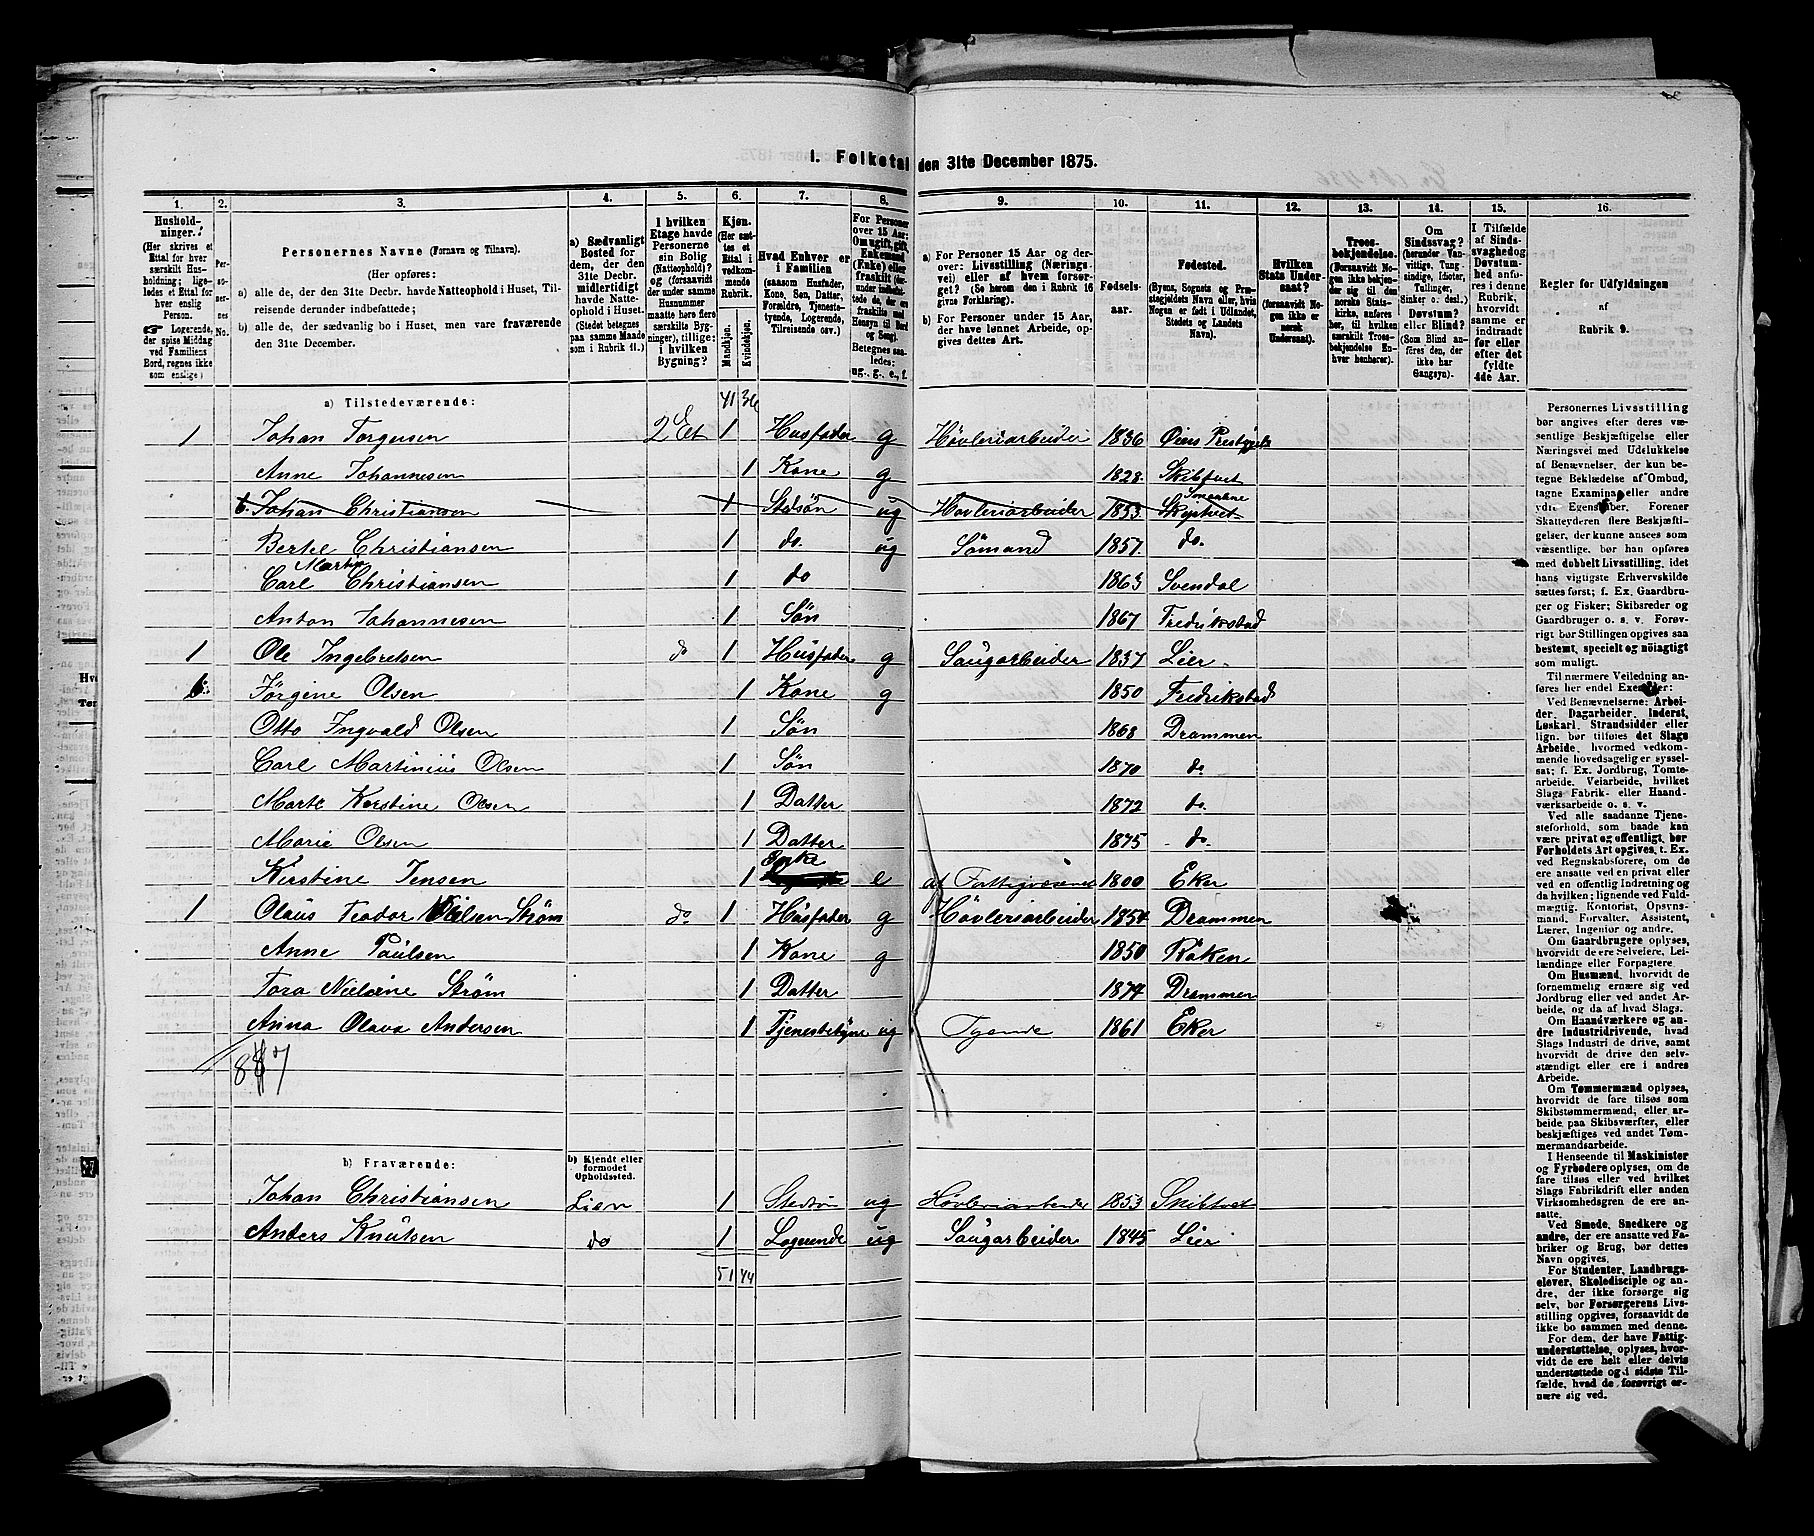 1. Folketal den 31te December 1875.
1. 2. 3. 4. 5. 6. 7. 8. 9. 10. 11. 12. 13. 14. 15. 16.
Hushold-
ninger.
(Her skrives et
Ettal for hver
særskilt Hus-
holdning; lige-
ledes et Ettal for
hver enslig
Person.
Logerende,
der spise Middag
ved Familiens
Bord, regnes ikke
som enslige)
Per-
so-
ner-
nes
No.
Personernes Navne (Fornavn og Tilnavn).
(Her opføres:
a) alle de, der den 31te Decbr. havde Natteophold i Huset, Til-
reisende derunder indbefattede;
b) alle de, der sædvanlig bo i Huset, men vare fraværende
den 31te December.
a) Sædvanligt
Bosted for
dem, der den
31te Decbr.
midlertidigt
havde Natte-
ophold i Huset.
(Stedet betegnes
paa samme Maade
som i Rubrik 11.)
I hvilken
Etage havde
Personerne
sin Bolig
(Natteophold)?
og (forsaavidt
der under samme
Husnummer
maatte høre flere
særskilte Byg-
ninger), tillige:
i hvilken
Bygning?
Kjøn.
(Her sæt-
tes et
Ettal i
vedkom-
mende
Rubrik.
Mandkjøn.
Kvindekjøn.
Hvad Enhver er
i Familien
(saasom Husfader,
Kone, Søn, Datter,
Forældre, Tjeneste-
tyende, Logerende,
Tilreisende osv.)
For Personer
over 15 Aar:
Om ugift, gift,
Enkemand
(Enke) eller
fraskilt
Betegnes saa-
ledes:
ug., g., e., f.
a) For Personer 15 Aar og der-
over: Livsstilling (Nærings-
vei) eller af hvem forsør-
get? (Se herom den i Rubrik 16
givne Forklaring).
b) For Personer under 15 Aar,
der have lønnet Arbeide, op-
gives dettes Art.
Fødsels-
aar.
Fødested.
(Byens, Sognets og Præ-
stegjeldets Navn eller, hvis
Nogen er født i Udlandet,
Stedets og Landets
Navn).
Hvilken
Stats Under-
saat?
(forsaavidt No-
gen ikke er
norsk
Undersaat).
Troes-
bekjendelse.
(Forsaavidt No-
gen ikke bekjen-
der sig til den
norske Stats-
kirke, anføres
her, til hvilken
særskilt Troes-
bekjendelse En-
hver henhører).
Om
Sindssvag?
(herunder Van-
vittige, Tung-
sindige, Idioter,
Tullinger,
Sinker o. desl.)
Døvstum?
eller Blind?
(Som Blind an-
føres den, der
ikke har
Gangsyn).
I Tilfælde
af Sinds-
svaghed og
Døvstum-
hed anfø-
res i denne
Rubrik,
hvorvidt
samme er
indtraadt
før eller
efter det
fyldte
4de Aar.
Regler for Udfyldningen
af
Rubrik 9.
a) Tilstedeværende: 41 36
1 Johan Torgersen 2 Et 1 Husfader g Høvleriarbeider 1836
Anne Johannesen 1 Kone g 1828 Skibtvet
Johan Christiansen 1 Stedsøn ug Høvleriarbeider 1853 Skiptvet
Bertel Christiansen 1 do. ug Sømand 1857 do.
Martin
Carl Christiansen 1 do 1863 Svendal
Anton Johannesen 1 Søn 1867 Fredrikstad
1 Ole Ingebretsen do 1 Husfader g Saugarbeider 1837 Lier
Jørgine Olsen 1 Kone g 1850 Fredrikstad
Otto Ingvald Olsen 1 Søn 1868 Drammen
Carl Martinius Olsen 1 Søn 1870 do
Marte Kirstine Olsen 1 Datter 1872 do.
Marie Olsen 1 Datter 1875 do.
Kirstine Jensen 1 Enke e af Fattigvæsenet 1800 Eker
1 Olaus Teodor Nielsen Strøm do 1 Husfader g Høvleriarbeider 1854 Drammen
Anne Paulsen 1 Kone g 1850 Røken
Tora Nieline Strøm 1 Datter 1874 Drammen
Anna Olava Andersen 1 ug Tyende 1861 Eker
b) Fraværende: b) Kjendt eller
formodet
Opholdssted.
Johan Christiansen Lier 1 Stedsøn ug Høvleriarbeider 1853 Skibtvet
Anders Knutsen do 1 Logerende ug Saugarbeider 1845 Lier
51 44
Personernes Livsstilling
bør angives efter deres væ-
sentlige Beskjæftigelse eller
Næringsvei med Udelukkelse
af Benævnelser, der kun be-
tegne Beklædelse af Ombud,
tagne Examina eller andre
ydre Egenskaber. Forener
Skatteyderen flere Beskjæfti-
gelser, der kunne ansees som
væsentlige, bør han opføres
med dobbelt Livsstilling, idet
hans vigtigste Erhvervskilde
sættes først; f. Ex. Gaardbru-
ger og Fisker; Skibsreder og
Gaardbruger o. s. v. Forøv-
rigt bør Stillingen opgives saa
bestemt, specielt og nøiagtigt
som muligt.
Til nærmere Veiledning an-
føres her endel Exempler:
Ved Benævnelserne: Arbei-
der, Dagarbeider, Inderst,
Løskarl, Strandsidder eller
lign. bør tilføies det Slags
Arbeide, hvormed vedkom-
mende hovedsagelig er syssel-
sat; f. Ex. Jordbrug, Tomte-
arbeide, Veiarbeide, hvilket
Slags Fabrik- eller Haand-
værksarbeide o. s. v.
Ved alle saadanne Tjene-
steforhold, som baade kan
være privat og offentligt, bør
Forholdets Art opgives, t. Ex.
ved Regnskabsførere, om de
ere ansatte ved en privat eller
ved en offentlig Indretning og
da hvilken; lignende ved Fuld-
mægtig, Kontorist, Opsyns-
mand, Forvalter, Assistent,
Lærer, Ingeniør og andre.
Om Gaardbrugere oplyses,
hvorvidt de ere Selveiere, Lei-
lændinge eller Forpagtere.
Om Husmænd, hvorvidt de
fornemmelig ernære sig ved
Jordbrug eller ved andet Ar-
beide, og da af hvad Slags.
Om Haandværkere og an-
dre Industridrivende, hvad
Slags Industri de drive, samt
hvorvidt de drive den selv-
stændigt eller ere i andres
Arbeide.
Om Tømmermænd oplyses,
hvorvidt de fare tilsøs som
Skibstømmermænd, eller ar-
beide paa Skibsværfter, eller
beskjæftiges ved andet Tøm-
mermandsarbeide.
I Henseende til Maskinister
og Fyrbødere oplyses, om de
fare tilsøs eller ved hvilket
Slags Fabrikdrift eller anden
Virksomhedsgren de ere an-
satte.
Ved Smede, Snedkere og
andre, der ere ansatte ved Fa-
briker og Brug, bør dettes
Navn opgives.
For Studenter, Landbrugs-
elever, Skoledisciple og an-
dre, der ikke forsørge sig
selv, bør Forsørgerens Livs-
stilling opgives, forsaavidt de
ikke bo sammen med denne.
For dem, der have Fattig-
understøttelse, oplyses, hvor-
vidt de ere helt eller delvis
understøttede og i sidste Til-
fælde, hvad de forøvrigt er-
nære sig ved.